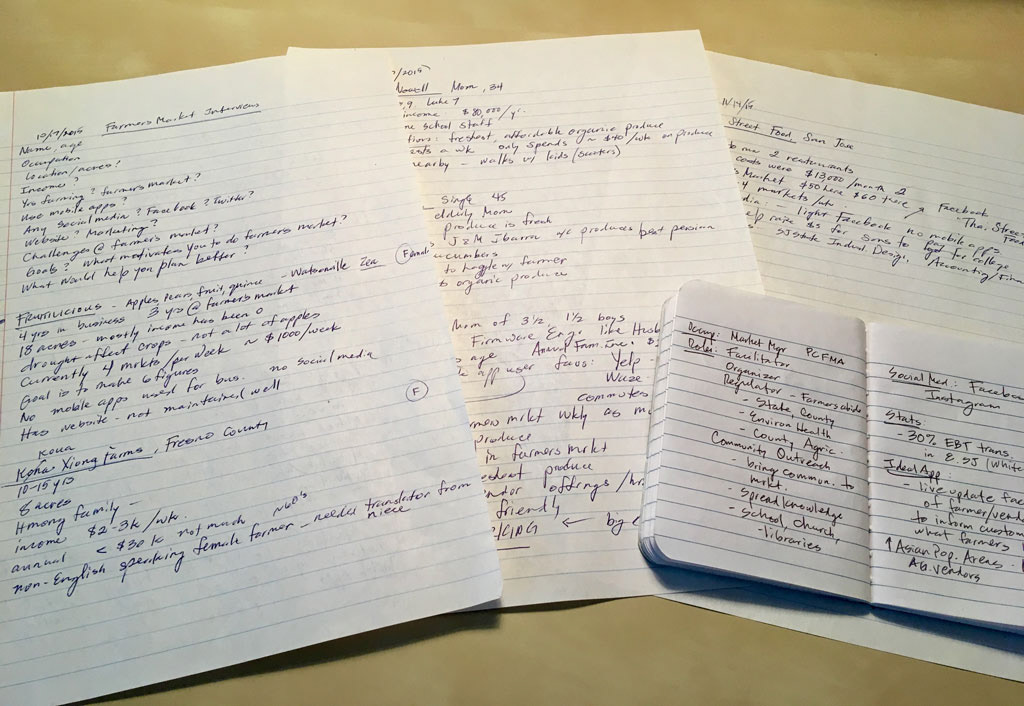 12/17/2015 Farmers Market Interviews
Name, age
Occupation
Location/acres?
Income?
Yrs farming? farmers market?
Use mobile apps?
Any social media? Facebook? Twitter?
Website? Marketing?
Challenges @ farmers market?
Goals? What motivates you to do farmers market?
What would help you plan better?
- Watsonville
FRUITILICIOUS - Apples, pears, fruit, quince
4 yrs in business 3 yrs @ farmers market
18 acres - mostly income has been 0
drought affect crops - not a lot of apples
Currently 4 mrkts/per week ~ $1000/week
Goal is to make 6 figures
No mobile apps used for bus. no social media
Has website - not maintained well
F
Koua
Xiong Farms, Fresno County
10-15 yrs
8 acres
Hmong family -
income $2-3k/wk.
annual < $30k not much
non-English speaking female farmer - needed translator from
niece
/2015
Mom, 34
9 Luke 7
income $80,000/yr.
school staff
freshest, affordable organic produce
a wk only spends ~ $40/wk on produce
nearby - walks w/ kids (scooters)
Single 45
elderly Mom
produce is fresh
J&M Ibarra b/c produces best persian
cucumbers
to haggle w/ farmer
organic produce
Mom of 3 1/2, 1 1/2 boys
Firmware Eng. like Husb
age Annual Fam. Inc. $
app user favs: Yelp -
Waze
commuters
mrkt wkly as
produce
in farmers mrkt
produce
offerings/hr.
friendly
←
Street Food San Jose
2 restaurants
costs were $13,000/month
Market $50 here $60 there
markets/wk
Facebook
- light Facebook no mobile apps
raise $s for sons to pay for college
SJState Indust Design, Accounting/
Occup: Market Mgr PCFMA
Roles: Facilitator
Organizer
Regulator - Farmers abide
- State County
- Environ Health
- County Agric.
Community Outreach
- bring commun. to
mrkt.
- Spread knowledge
- School, church,
- libraries
Social Med: Facebook
Instagram
Stats:
- 30% EBT trans.
in E.SJ (White
Ideal App:
- live update
of farmer/vend
to inform custom
what farmers
↑ Asian Pop. Areas -
AG. vendors